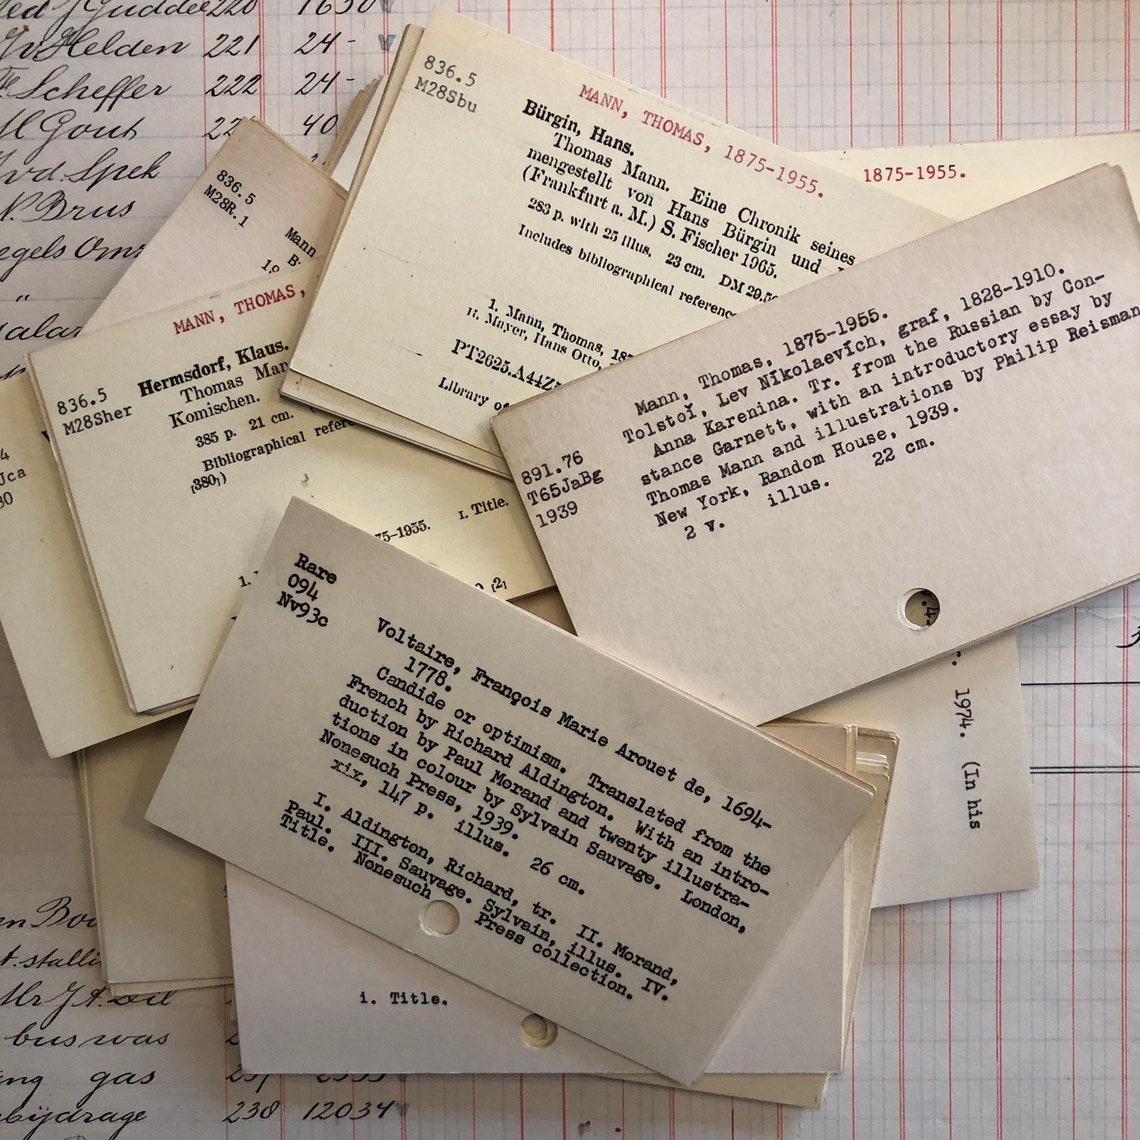 220 1630
Helden 221 24-
Scheffer 222 24-
Gout 40
Spek
Brus
836.5
M28Sbu
MANN, THOMAS, 1875-1955.
Bürgin, Hans.
Thomas Mann. Eine Chronik seines
mengestellt von Hans Bürgin und
(Frankfurt a. M.) S. Fischer 1965.
283 p. with 25 illus. 23 cm. DM 29.50
Includes bibliographical reference
1. Mann, Thomas, 187
II. Mayer, Hans Otto,
PT2625.A44Z5
Library of
1875-1955.
836.5
M28R.1
Mann
B
19
MANN, THOMAS,
836.5
M28Sher
Hermsdorf, Klaus.
Thomas Man
Komischen.
385 p. 21 cm.
Bibliographical refere
(380₁)
75-1955. I. Title.
1.
[2]
4
Jca
30
Mann, Thomas, 1875-1955.
Tolstoĭ, Lev Nīkolaevĭch, graf, 1828-1910.
Anna Karenina. Tr. from the Russian by Con-
stance Garnett, with an introductory essay by
Thomas Mann and illustrations by Philip Reisman
New York, Random House, 1939.
2 v. illus. 22 cm.
891.76
T65JaBg
1939
Rare
094
Nv93c
Voltaire, François Marie Arouet de, 1694-
1778.
Candide or optimism. Translated from the
French by Richard Aldington. With an intro-
duction by Paul Morand and twenty illustra-
tions in colour by Sylvain Sauvage. London,
Nonesuch Press, 1939.
xix, 147 p. illus. 26 cm.
I. Aldington, Richard, tr. II. Morand,
Paul. III. Sauvage, Sylvain, illus. IV.
Title. Nonesuch Press collection.
1974. (In his
i. Title.
bus was
gas
238 12034